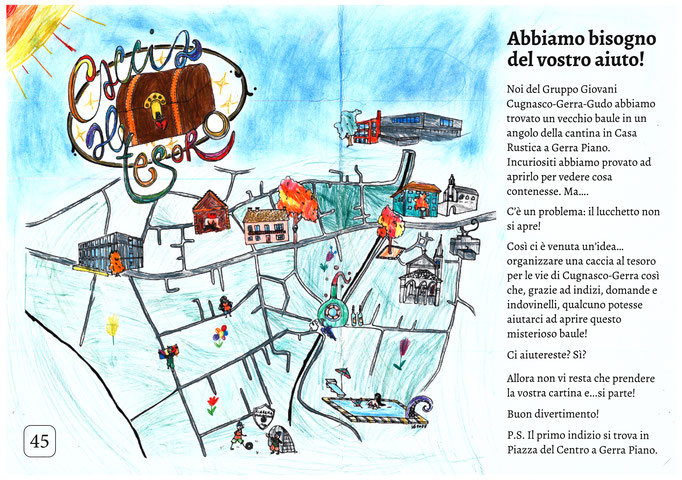 Caccia
al
tesoro
Abbiamo bisogno
del vostro aiuto!
Noi del Gruppo Giovani
Cugnasco-Gerra-Gudo abbiamo
trovato un vecchio baule in un
angolo della cantina in Casa
Rustica a Gerra Piano.
Incuriositi abbiamo provato ad
aprirlo per vedere cosa
contenesse. Ma....
C'è un problema: il lucchetto non
si apre!
Così ci è venuta un'idea...
organizzare una caccia al tesoro
per le vie di Cugnasco-Gerra così
che, grazie ad indizi, domande e
indovinelli, qualcuno potesse
aiutarci ad aprire questo
misterioso baule!
Ci aiutereste? Sì?
Allora non vi resta che prendere
la vostra cartina e...si parte!
Buon divertimento!
P.S. Il primo indizio si trova in
Piazza del Centro a Gerra Piano.
45